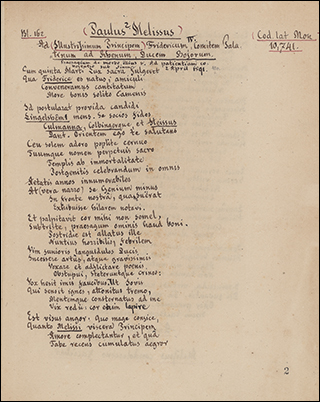 Bl. 162. (Paulus Melissus)
Ad Illustrissimum Principem Fridericum IV. Comitem Pala-
tinum ad Rhenum Ducem Bojorum.
(Cod lat Mon
10,741.
Cum quinta Marti Lux sacra fulgeret
Qua Friderice es natus; amiculi
Conveneramus cantitatum
More bonis solito Camenis
Id postularat provida candidi
Lingelshemi mens. Se socios fides
Culmanna, Colbingerque et Melissi
Dant. Orientem ego te salutans
Ceu solem adoro poplite cernuo
Tuumque nomen perpetuis sacro
Templis ab immortalitate
Postgenitis celebrandum in omnis
Aetatis annos innumerabiles
At (vera narro) se Genium minus
In fronte nostra,
hilarem notavi.
Et palpitavit cor mihi non semel,
Subtriste, praesagum ominis haud boni.
Postridie est allatus ille
Nuntius horribilis, febrilem
Vim junioris languidulis Ducis
Successe artus, atque gravissimis
Vexare et adflictare poenis.
Obstupui, steteruntque crines:
Vox haesit imis faucibus. Ut Jovis
Qui sensit ignes, attonitus tremo,
Mentemque consternatus ad me
Vix redii: cor
Est visus angor. Quo mage
Quanto Melissi viscera Principem
Amore complectantur, et qua
Tabe recens cumulatus aegror
2